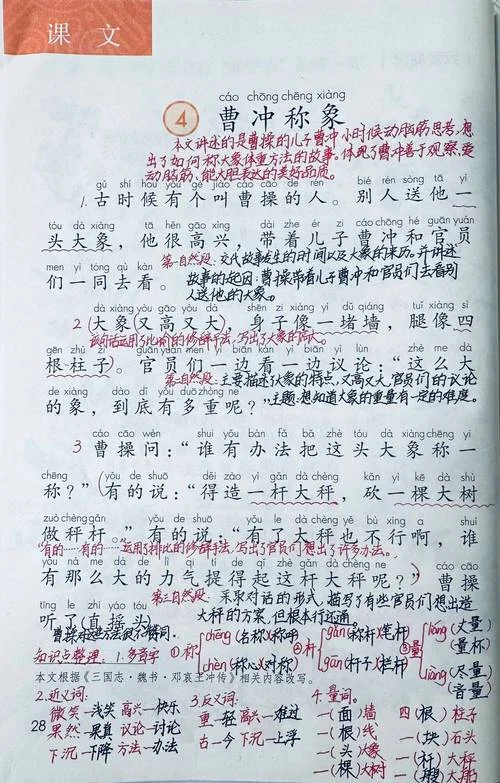 课文
cáo chōng chēng xiàng
4 曹冲称象
本文讲述的是曹操的儿子曹冲小时候动脑筋思考,想
出了如何称大象体重方法的故事。体现了曹冲善于观察,爱
动脑筋,能大胆表达的美好品质。
gǔ shí hou yǒu gè jiào cáo cāo de rén bié rén sòng tā yì
1.古时候有个叫曹操的人。别人送他一
tóu dà xiàng tā hěn gāo xìng dài zhe ér zi cáo chōng hé guān yuán
头大象,他很高兴,带着儿子曹冲和官员
第一自然段:交代故事发生的时间以及大象的来历。并讲述
men yì tóng qù kàn
们一同去看。
故事的起因:曹操带着儿子曹冲和官员们去看别
人送他的大象。
dà xiàng yòu gāo yòu dà shēn zi xiàng yì dǔ qiáng tuǐ xiàng sì
2(大象(又高又大),身子像一堵墙,腿像四
该句话运用了比喻的修辞手法,写出了大象的高大。
gēn zhù zi guān yuán men yì biān kàn yì biān yì lùn zhè me dà
根柱子)。官员们一边看一边议论:“这么大
第二自然段:主要描述了大象的特点,又高又大,官员们的议论
de xiàng dào dǐ yǒu duō zhòng ne
的象,到底有多重呢?”
主题:想知道大象的重量有一定的难度。
cáo cāo wèn shuí yǒu bàn fǎ bǎ zhè tóu dà xiàng chēng yi
3 曹操问:“谁有办法把这头大象称一
chēng yǒu de shuō děi zào yì gǎn dà chèng kǎn yì kē dà shù
称?”(有的说:“得造一杆大秤,砍一棵大树
zuò chèng gǎn yǒu de shuō yǒu le dà chèng yě bù xíng a shuí
做秤杆。”有的说:“有了大秤也不行啊,谁
“有的……有的……”运用了排比的修辞手法,写出了官员们想出了许多办法。
yǒu nà me dà de lì qi tí de qǐ zhè gǎn dà chèng ne cáo cāo
有那么大的力气提得起这杆大秤呢?”)曹操
第三自然段:采取对话的形式,描写了有些官员们想出造
tīng le zhí yáo tóu
听了(直摇头)
大秤的方案,但根本行不通。
曹操对这方法很不赞同.
知识点整理:1.多音字
①称 chēng (名称)(称呼)
chèn (称心)(对称)
②杆 gǎn (称杆)(笔杆)
gān (杆子)(栏杆)
③量 liàng (大量)
liáng (量杯)
(尽量)
(音量)
本文根据《三国志·魏书·邓哀王冲传》相关内容改写。
2.近义词:
微笑—浅笑 高兴—快乐
果然—果真 议论—讨论
下沉—下降 方法—办法
3.反义词:
重—轻 高兴—难过
古—今 下沉—上浮
4.量词。
一(面)墙 四(根)柱子
一(根)线 一(块)石头
一(头)大象 一(杆)大秤
一(棵)大树 一(艘)大船
28